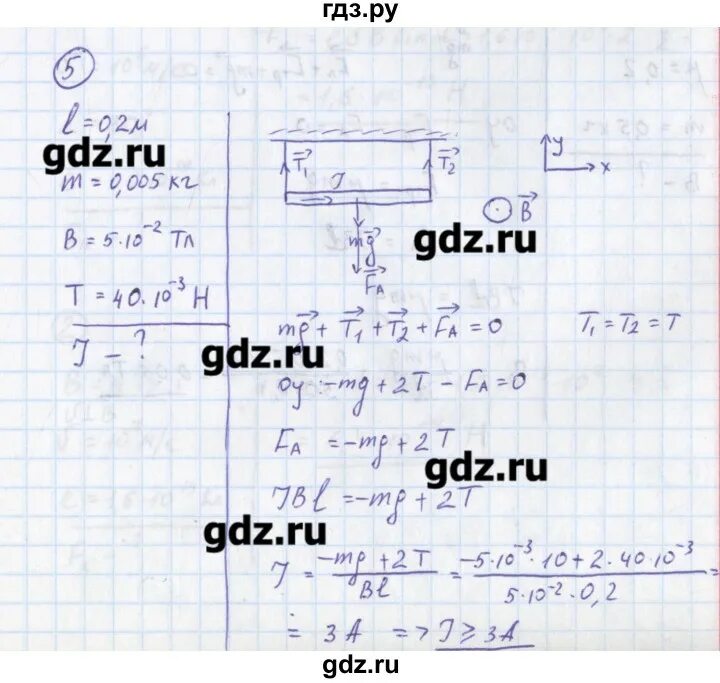 гдз.ру
5
l = 0,2м
gdz.ru
m = 0,005 кг
B = 5·10⁻² Тл
T = 40·10⁻³ Н
J - ?
T₁ T₂
J
y
x
B
mg
gdz.ru
F_A
mg + T₁ + T₂ + F_A = 0 T₁ = T₂ = T
gdz.ru
oy: -mg + 2T - F_A = 0
F_A = -mg + 2T
gdz.ru
JBl = -mg + 2T
gdz.ru
J = (-mg + 2T)/(Bl) = (-5·10⁻³·10 + 2·40·10⁻³)/(5·10⁻²·0,2) =
= 3A => J ≥ 3A
gdz.ru